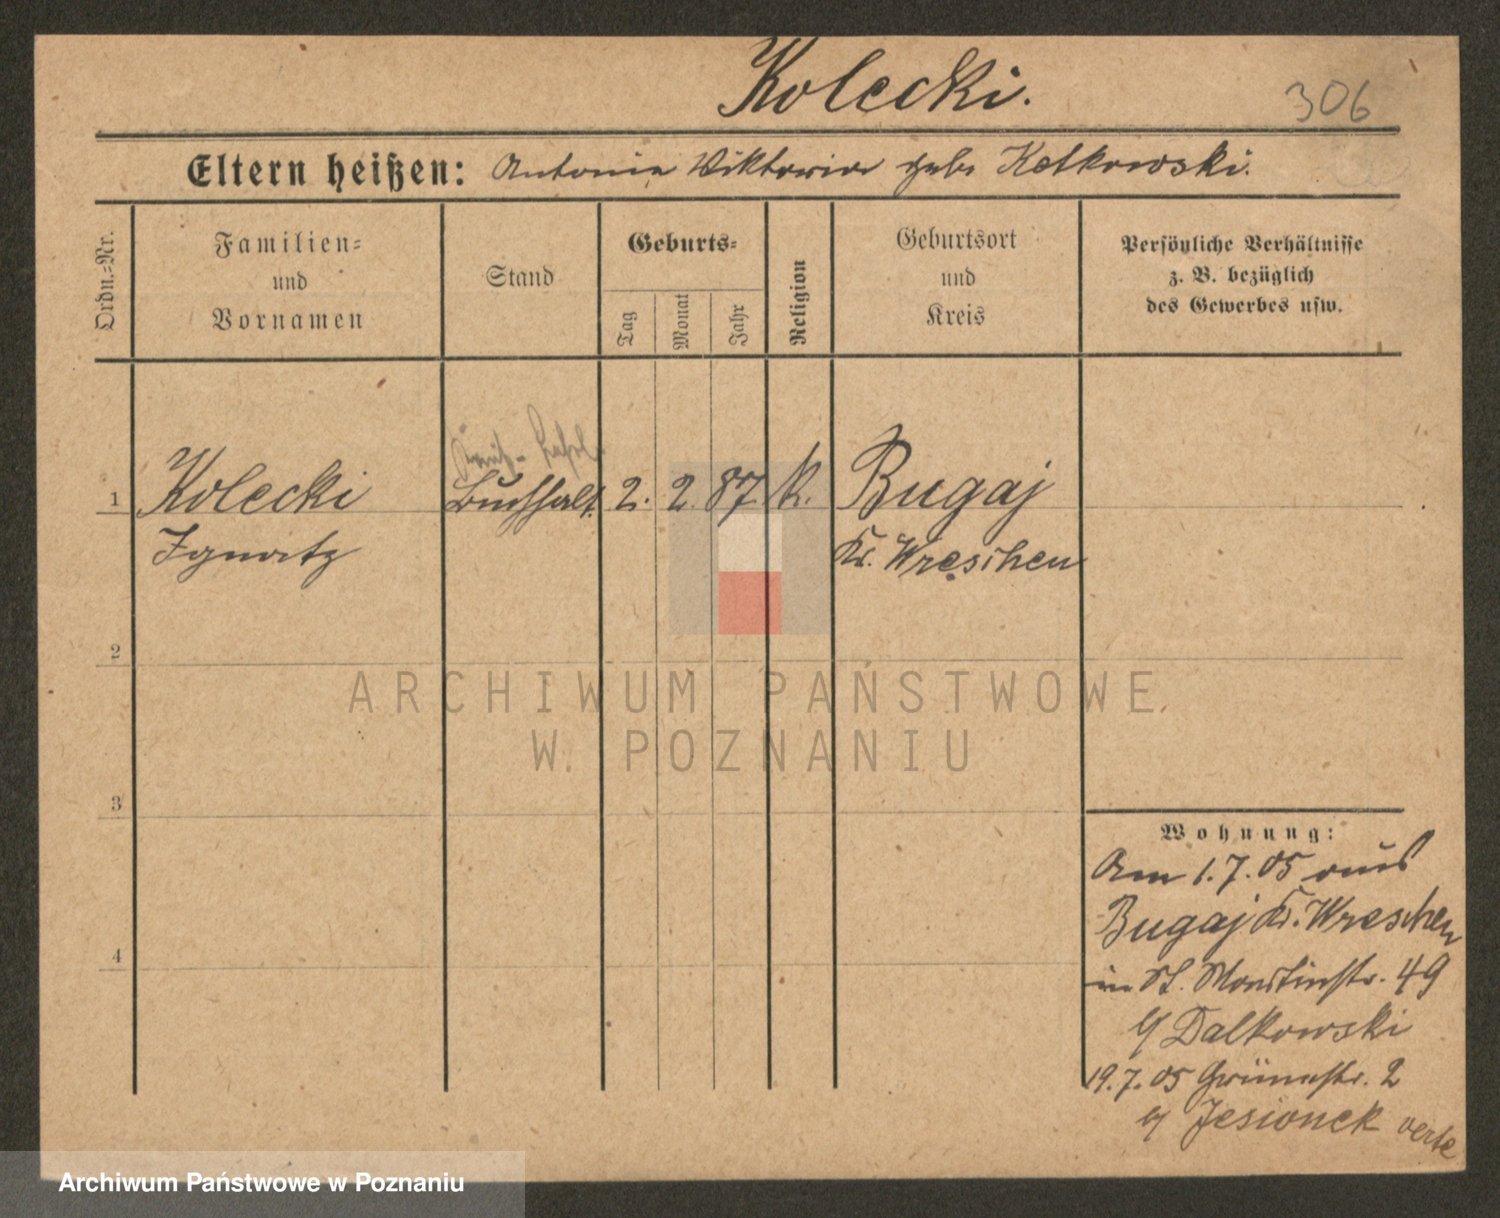 Kolecki.
306
Eltern heißen: Antonia Viktoria gebr Ketkowski.
Ordn.=Nr.
Familien=
und
Vornamen
Stand
Geburts=
Tag
Monat
Jahr
Religion
Geburtsort
und
Kreis
Persönliche Verhältnisse
z. B. bezüglich
des Gewerbes usw.
1 Kolecki Buchhalt. 2. 2. 87. k. Bugaj
Ignatz Kr. Wreschen
2
3
4
Wohnung:
Am 1.7.05 aus
Bugaj Kr. Wreschen
in St. Martinstr. 49
Dalkowski
19.7.05 Grünestr. 2
Jesionek verte
ARCHIWUM PAŃSTWOWE
W POZNANIU
Archiwum Państwowe w Poznaniu